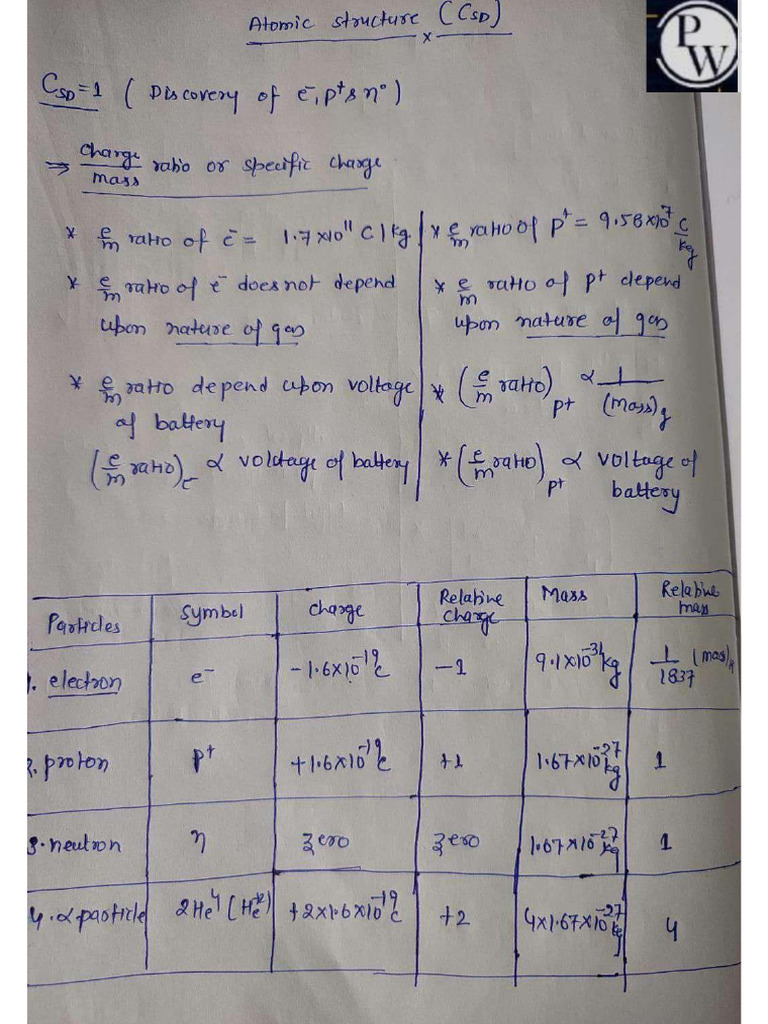 Atomic structure (CSD)
x
PW
CSD=1 ( Discovery of e⁻, p⁺ & n⁰)
⇒ Charge/mass ratio or specific charge
* e/m ratio of e⁻ = 1.7×10¹¹ C/kg
* e/m ratio of e⁻ does not depend
upon nature of gas
* e/m ratio depend upon voltage
of battery
(e/m ratio)e⁻ ∝ voldtage of battery
* e/m ratio of p⁺ = 9.58×10⁷ C/kg
* e/m ratio of p⁺ depend
upon nature of gas
* (e/m ratio)p⁺ ∝ 1/(mass)g
* (e/m ratio)p⁺ ∝ voltage of
battery
Particles Symbol Charge Relative Charge Mass Relative mass
1. electron e⁻ −1.6×10⁻¹⁹C −1 9.1×10⁻³¹kg 1/1837 (mass)H
2. proton p⁺ +1.6×10⁻¹⁹C +1 1.67×10⁻²⁷kg 1
3. neutron n zero zero 1.67×10⁻²⁷kg 1
4. α particle 2He⁴ (He⁺²) +2×1.6×10⁻¹⁹C +2 4×1.67×10⁻²⁷kg 4